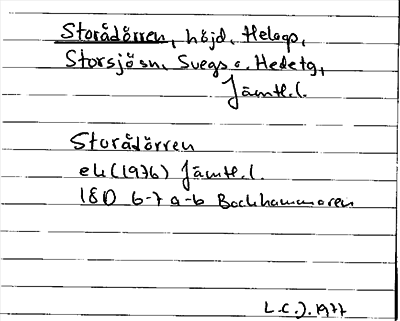 Storådörren, höjd, Helags,
Storsjösn, Svegs o. Hedetg,
Jämtl.l.
Storådörren
ek(1976) Jämtl.l.
18D 6-7 a-b Backhammaren
L.C.J. 1977